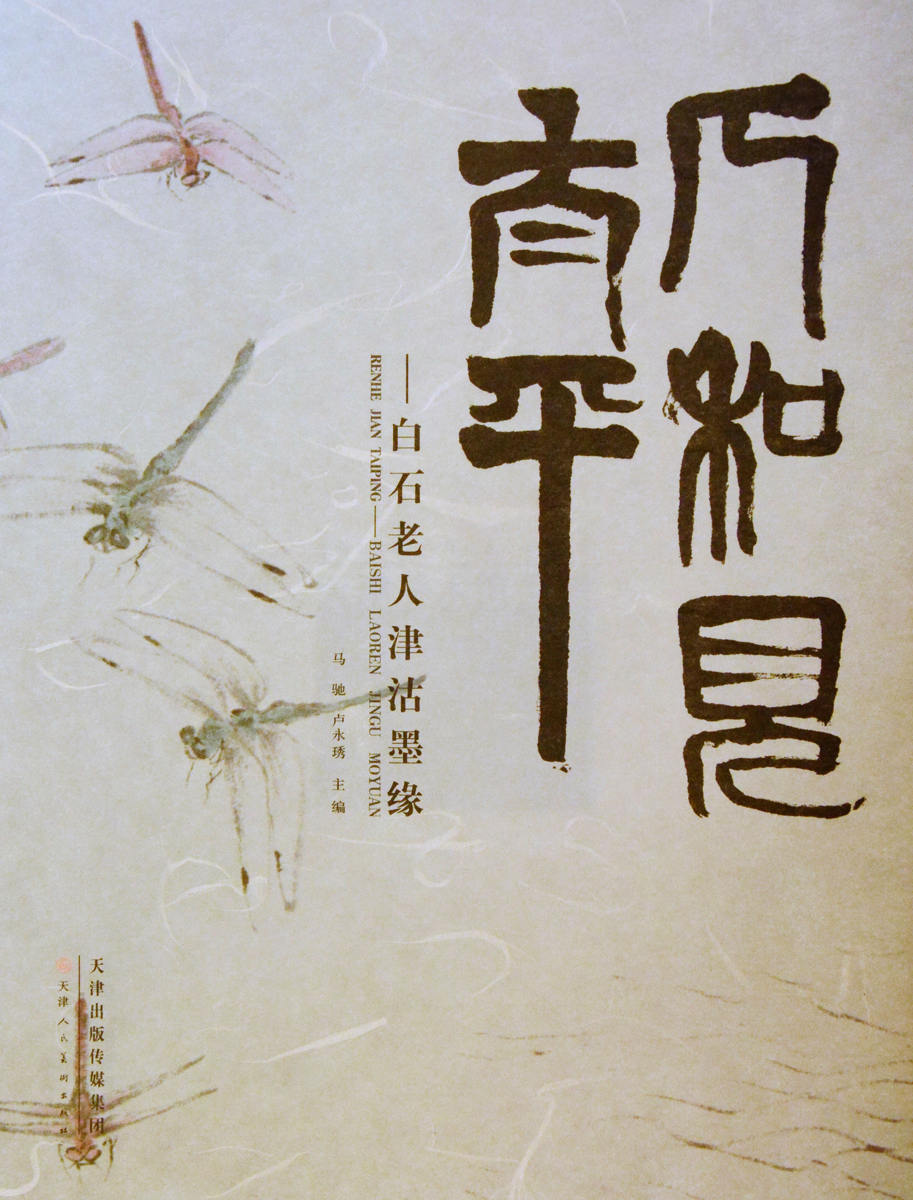 人和見
太平
——白石老人津沽墨缘
RENHE JIAN TAIPING——BAISHI LAOREN JINGU MOYUAN
马驰 卢永琇 主编
天津出版传媒集团
天津人民美术出版社